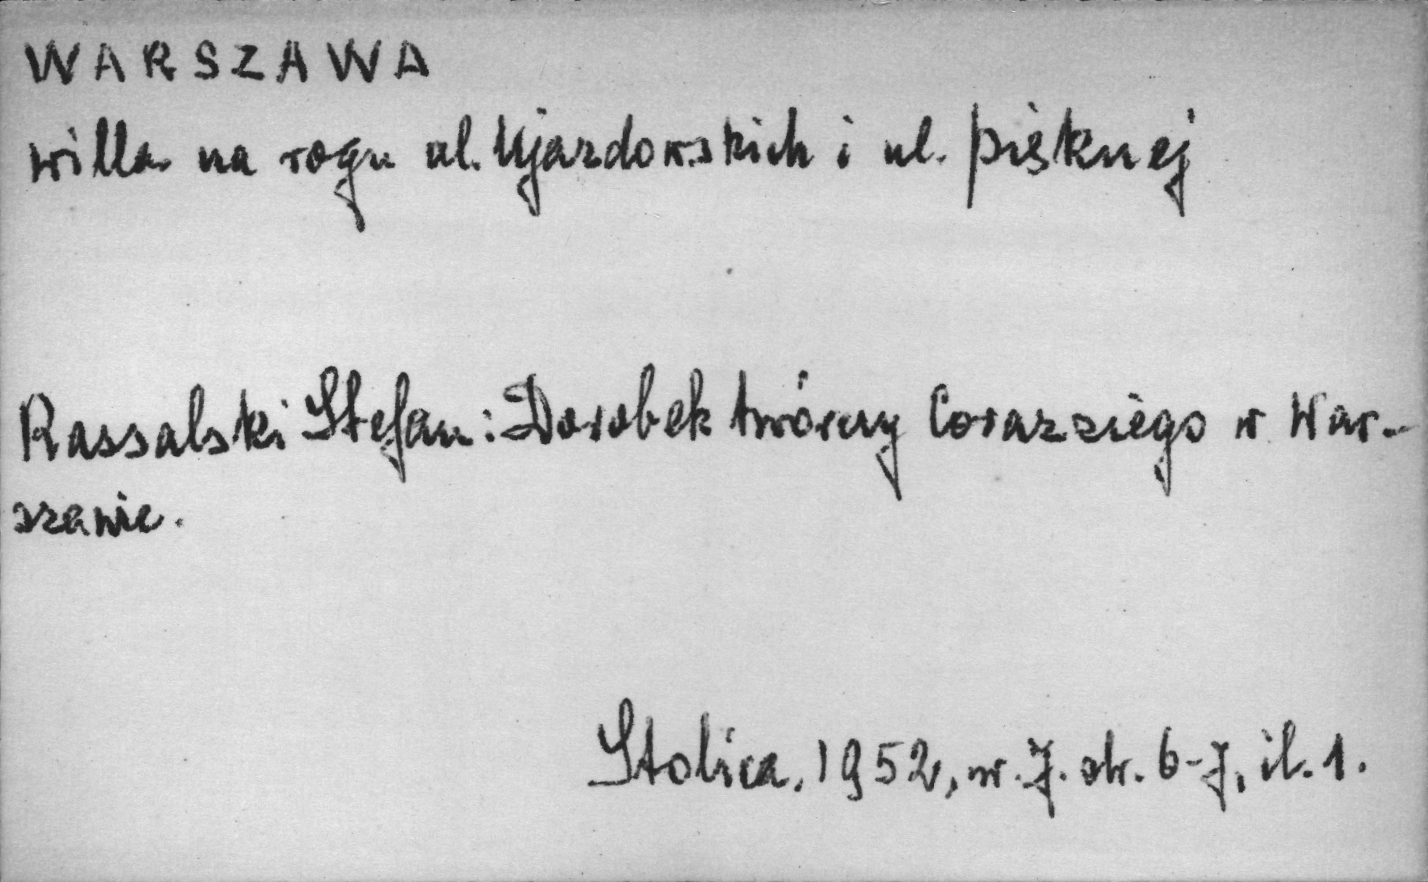 WARSZAWA
willa na rogu ul. Ujazdowskich i ul. Pięknej
Rassalski Stefan: Dorobek twórczy Corazziego w War-
szawie.
Stolica, 1952, nr. 7. str. 6-7, il. 1.